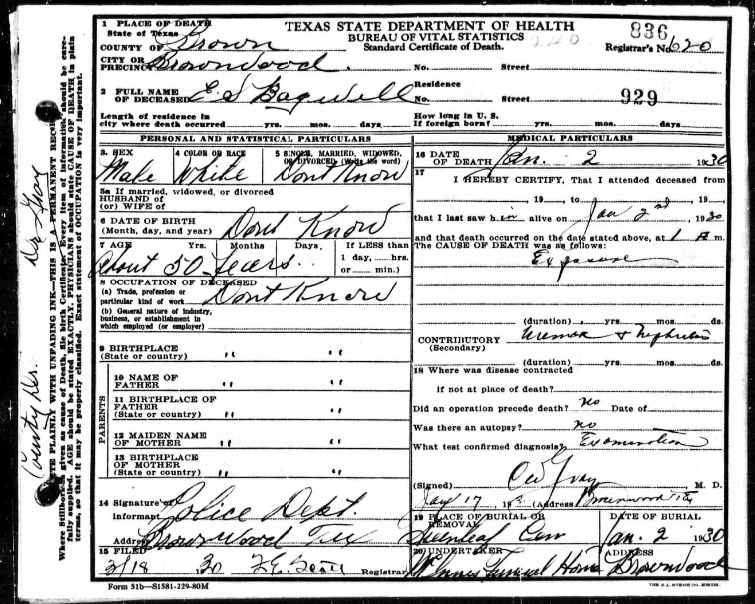 TEXAS STATE DEPARTMENT OF HEALTH
BUREAU OF VITAL STATISTICS
Standard Certificate of Death.
836
Registrar's No. 620
1 PLACE OF DEATH
State of Texas
COUNTY OF Brown
CITY OR
PRECINCT Brownwood. No. Street
2 FULL NAME
OF DECEASED E S Bagwell
Residence
No. Street
929
Length of residence in
city where death occurred yrs. mos. days.
How long in U. S.
If foreign born? yrs. mos. days.
PERSONAL AND STATISTICAL PARTICULARS
3. SEX
Male
4 COLOR OR RACE
White
5 SINGLE, MARRIED, WIDOWED,
OR DIVORCED (Write the word)
Dont Know
5a If married, widowed, or divorced
HUSBAND of
(or) WIFE of
6 DATE OF BIRTH
(Month, day, and year) Dont Know
7 AGE Yrs. Months Days.
About 50 Years
If LESS than
1 day, hrs.
or min.)
8 OCCUPATION OF DECEASED
(a) Trade, profession or
particular kind of work Dont Know
(b) General nature of industry,
business, or establishment in
which employed (or employer)
9 BIRTHPLACE
(State or country) " "
PARENTS
10 NAME OF
FATHER " "
11 BIRTHPLACE OF
FATHER
(State or country) " "
12 MAIDEN NAME
OF MOTHER " "
13 BIRTHPLACE
OF MOTHER
(State or country) " "
14 Signature of
informant Police Dept.
Address Brownwood Tex
15 FILED
3/18 30 Registrar
Form 51b—S1581-229-80M
MEDICAL PARTICULARS
16 DATE
OF DEATH Jan. 2 1930
17
I HEREBY CERTIFY, That I attended deceased from
, 19 , to Jan 2nd, 1930
that I last saw him alive on , 1930
and that death occurred on the date stated above, at 1 A m.
The CAUSE OF DEATH was as follows:
Exposure
(duration) yrs. mos. ds.
CONTRIBUTORY
(Secondary)
& Nephritis
(duration) yrs. mos. ds.
18 Where was disease contracted
if not at place of death?
Did an operation precede death? no Date of
Was there an autopsy? no
What test confirmed diagnosis? Examination
(Signed) Gray M. D.
17, 19 (Address) Brownwood
19 PLACE OF BURIAL OR
REMOVAL
Greenleaf Cem
DATE OF BURIAL
Jan. 2 1930
20 UNDERTAKER
McInnis Funeral Home
ADDRESS
Brownwood
County Der. Gray
WRITE PLAINLY WITH UNFADING INK—THIS IS A PERMANENT RECORD
Where Stillborn is given as cause of Death, file birth Certificate. Every item of information should be care-
fully supplied. AGE should be stated EXACTLY. PHYSICIANS should state CAUSE OF DEATH in plain
terms, so that it may be properly classified. Exact statement of OCCUPATION is very important.